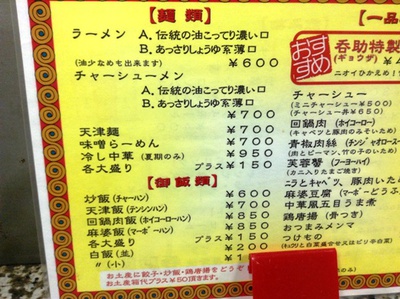 【麺類】
ラーメン A.伝統の油こってり濃い口
B.あっさりしょうゆ系薄口
(油少なめも出来ます) ￥600
チャーシューメン
A.伝統の油こってり濃い口
B.あっさりしょうゆ系薄口
￥700
天津麺 ￥700
味噌らーめん ￥700
冷し中華 (夏期のみ) ￥950
各大盛り プラス ￥150
【御飯類】
炒飯(チャーハン) ￥600
天津飯(テンシンハン) ￥700
回鍋肉飯(ホイコーローハン) ￥800
麻婆飯(マーボーハン) ￥700
各大盛り プラス ￥150
白飯(並) ￥200
〃(小)
お土産に餃子・炒飯・鶏唐揚をどうぞ
お土産箱代プラス￥50頂きます。
【一品
おすすめ
呑助特製
(ギョウザ)
ニオイひかえめ!
チャーシュー
(ミニチャーシュー￥500)
(チャーシュー丼￥650)
回鍋肉(ホイコーロー)
(キャベツと豚肉のみそいため)
青椒肉絲(チンジャオロース
(肉とピーマン、竹の子のいため)
芙蓉蟹(フーヨーハイ)
(カニ入りたまご焼き)
ニラとキャベツ、豚肉いため
麻婆豆腐(マーボーどうふ
中華風五目うま煮
鶏唐揚(骨つき)
おつまみメンマ
つけもの